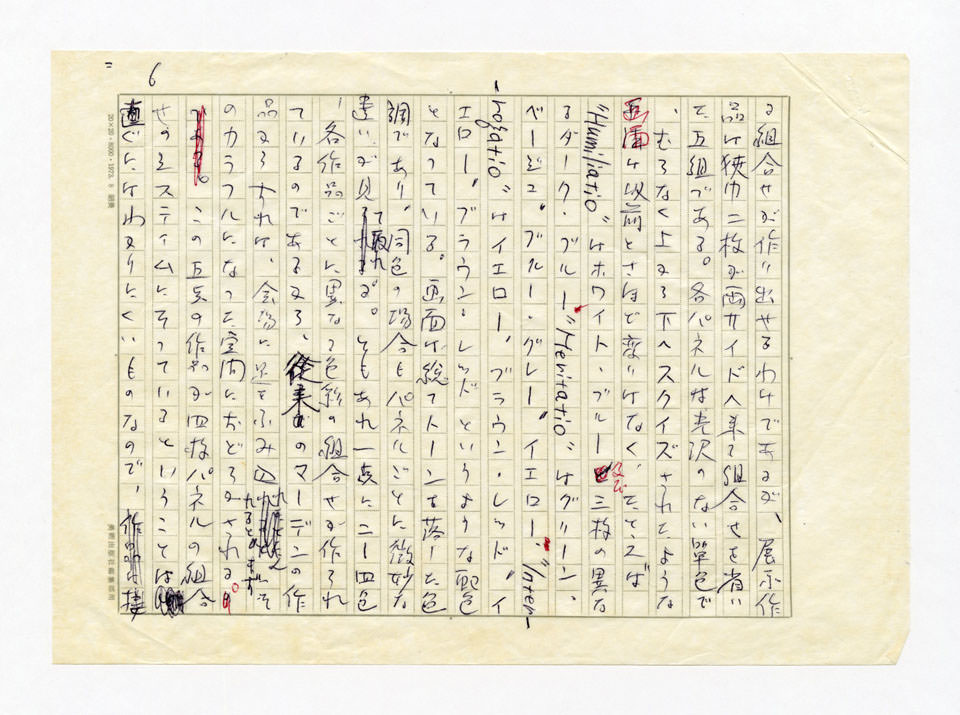 6
る組合せが作り出せるわけであるが、展示作
品は狭巾二枚が両サイドへ来る組合せを省い
た五組である。各パネルは光沢のない単色で
、むらなく上から下へスクイズされたような
画面は以前とさほど変りはなく、たとえば
"Humiliatio"はホワイト・ブルー及び三枚の異な
るダーク・ブルー、"Meritatio"はグリーン、
ベージュ、ブルー・グレー、イエロー、"Inter-
-rogatio"はイエロー、ブラウン・レッド、イ
エロー、ブラウン・レッドというような配色
となっている。画面は総てトーンを落した色
調であり、同色の場合もパネルごとに微妙な
違いが見て取れる。ともあれ一点に二ー四色
、各作品ごとに異なる色彩の組合せが作られ
ているのであるから、従来のマーデンの作
品からすれば、会場に足をふみ込
れるとまずそ
のカラフルになった空間におどろかされる。
この五点の作品が四枚パネルの組合
せのシステムに そっているということは
直ぐにはわかりにくいものなので、接
20×20